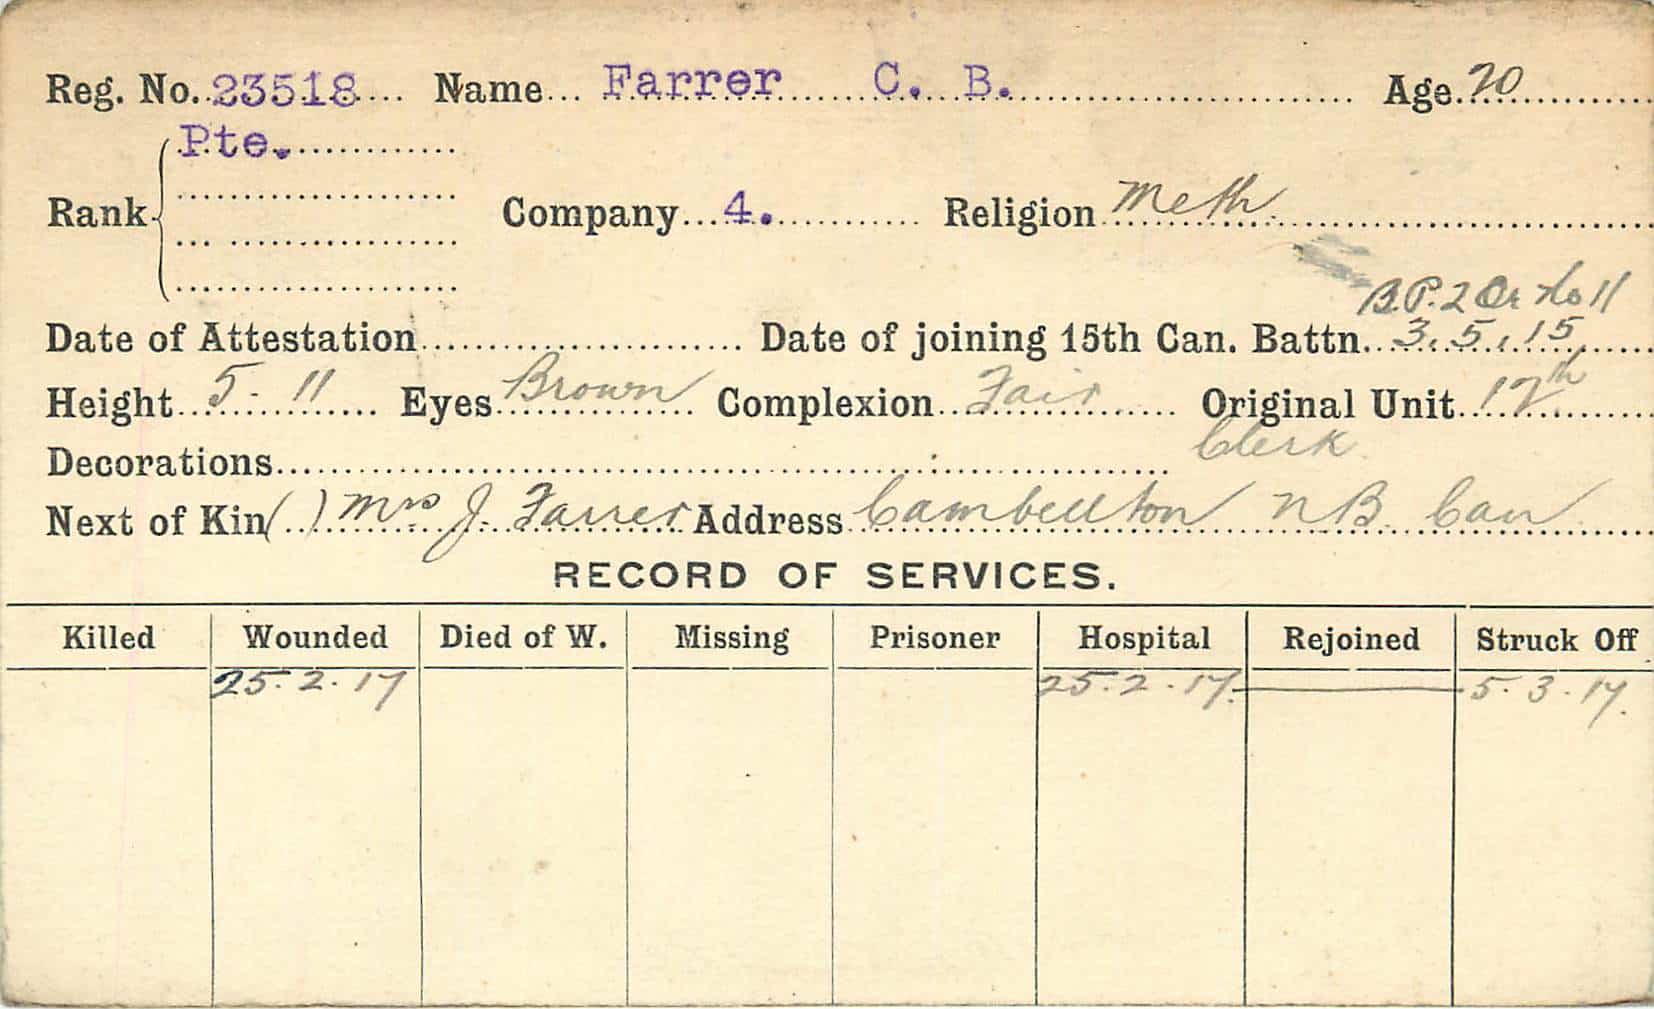 Reg. No. 23518 Name Farrer C. B. Age 20
Pte.
Rank Company 4. Religion Meth.
B.P. 2 Or No 11
Date of Attestation Date of joining 15th Can. Battn. 3.5.15
Height 5-11 Eyes Brown Complexion Fair Original Unit 12th
Decorations Clerk
Next of Kin ( ) Mrs J. Farrer Address Cambellton N B. Can
RECORD OF SERVICES.
Killed Wounded Died of W. Missing Prisoner Hospital Rejoined Struck Off
25.2.17 25.2.17. 5.3.17.